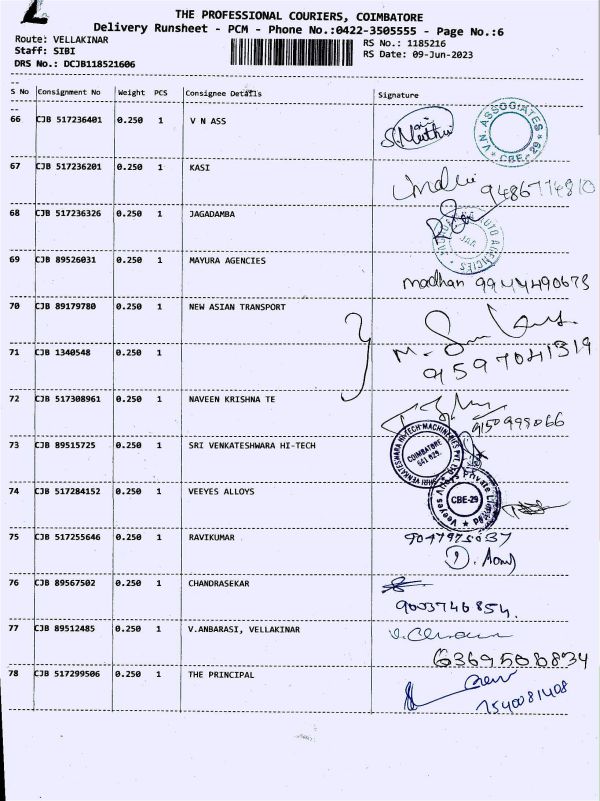 THE PROFESSIONAL COURIERS, COIMBATORE
Delivery Runsheet - PCM - Phone No.:0422-3505555 - Page No.:6
Route: VELLAKINAR
RS No.: 1185216
Staff: SIBI
RS Date: 09-Jun-2023
DRS No.: DCJB118521606
S No Consignment No Weight PCS Consignee Details Signature
66 CJB 517236401 0.250 1 V N ASS
V.N. ASSOCIATES * CBE-29 *
67 CJB 517236201 0.250 1 KASI
9486774810
68 CJB 517236326 0.250 1 JAGADAMBA
AUTO AGENCIES
69 CJB 89526031 0.250 1 MAYURA AGENCIES
madhan 9944490673
70 CJB 89179780 0.250 1 NEW ASIAN TRANSPORT
71 CJB 1340548 0.250 1
9597041319
72 CJB 517308961 0.250 1 NAVEEN KRISHNA TE
9150999066
73 CJB 89515725 0.250 1 SRI VENKATESHWARA HI-TECH
SHRI VENKATESHWARA HI-TECH MACHINERIES PVT LTD
COIMBATORE
641 029.
74 CJB 517284152 0.250 1 VEEYES ALLOYS
Veeyes Alloys Private Limited
CBE-29
75 CJB 517255646 0.250 1 RAVIKUMAR
76 CJB 89567502 0.250 1 CHANDRASEKAR
9003746854.
77 CJB 89512485 0.250 1 V.ANBARASI, VELLAKINAR
6369508834
78 CJB 517299506 0.250 1 THE PRINCIPAL
7540081408